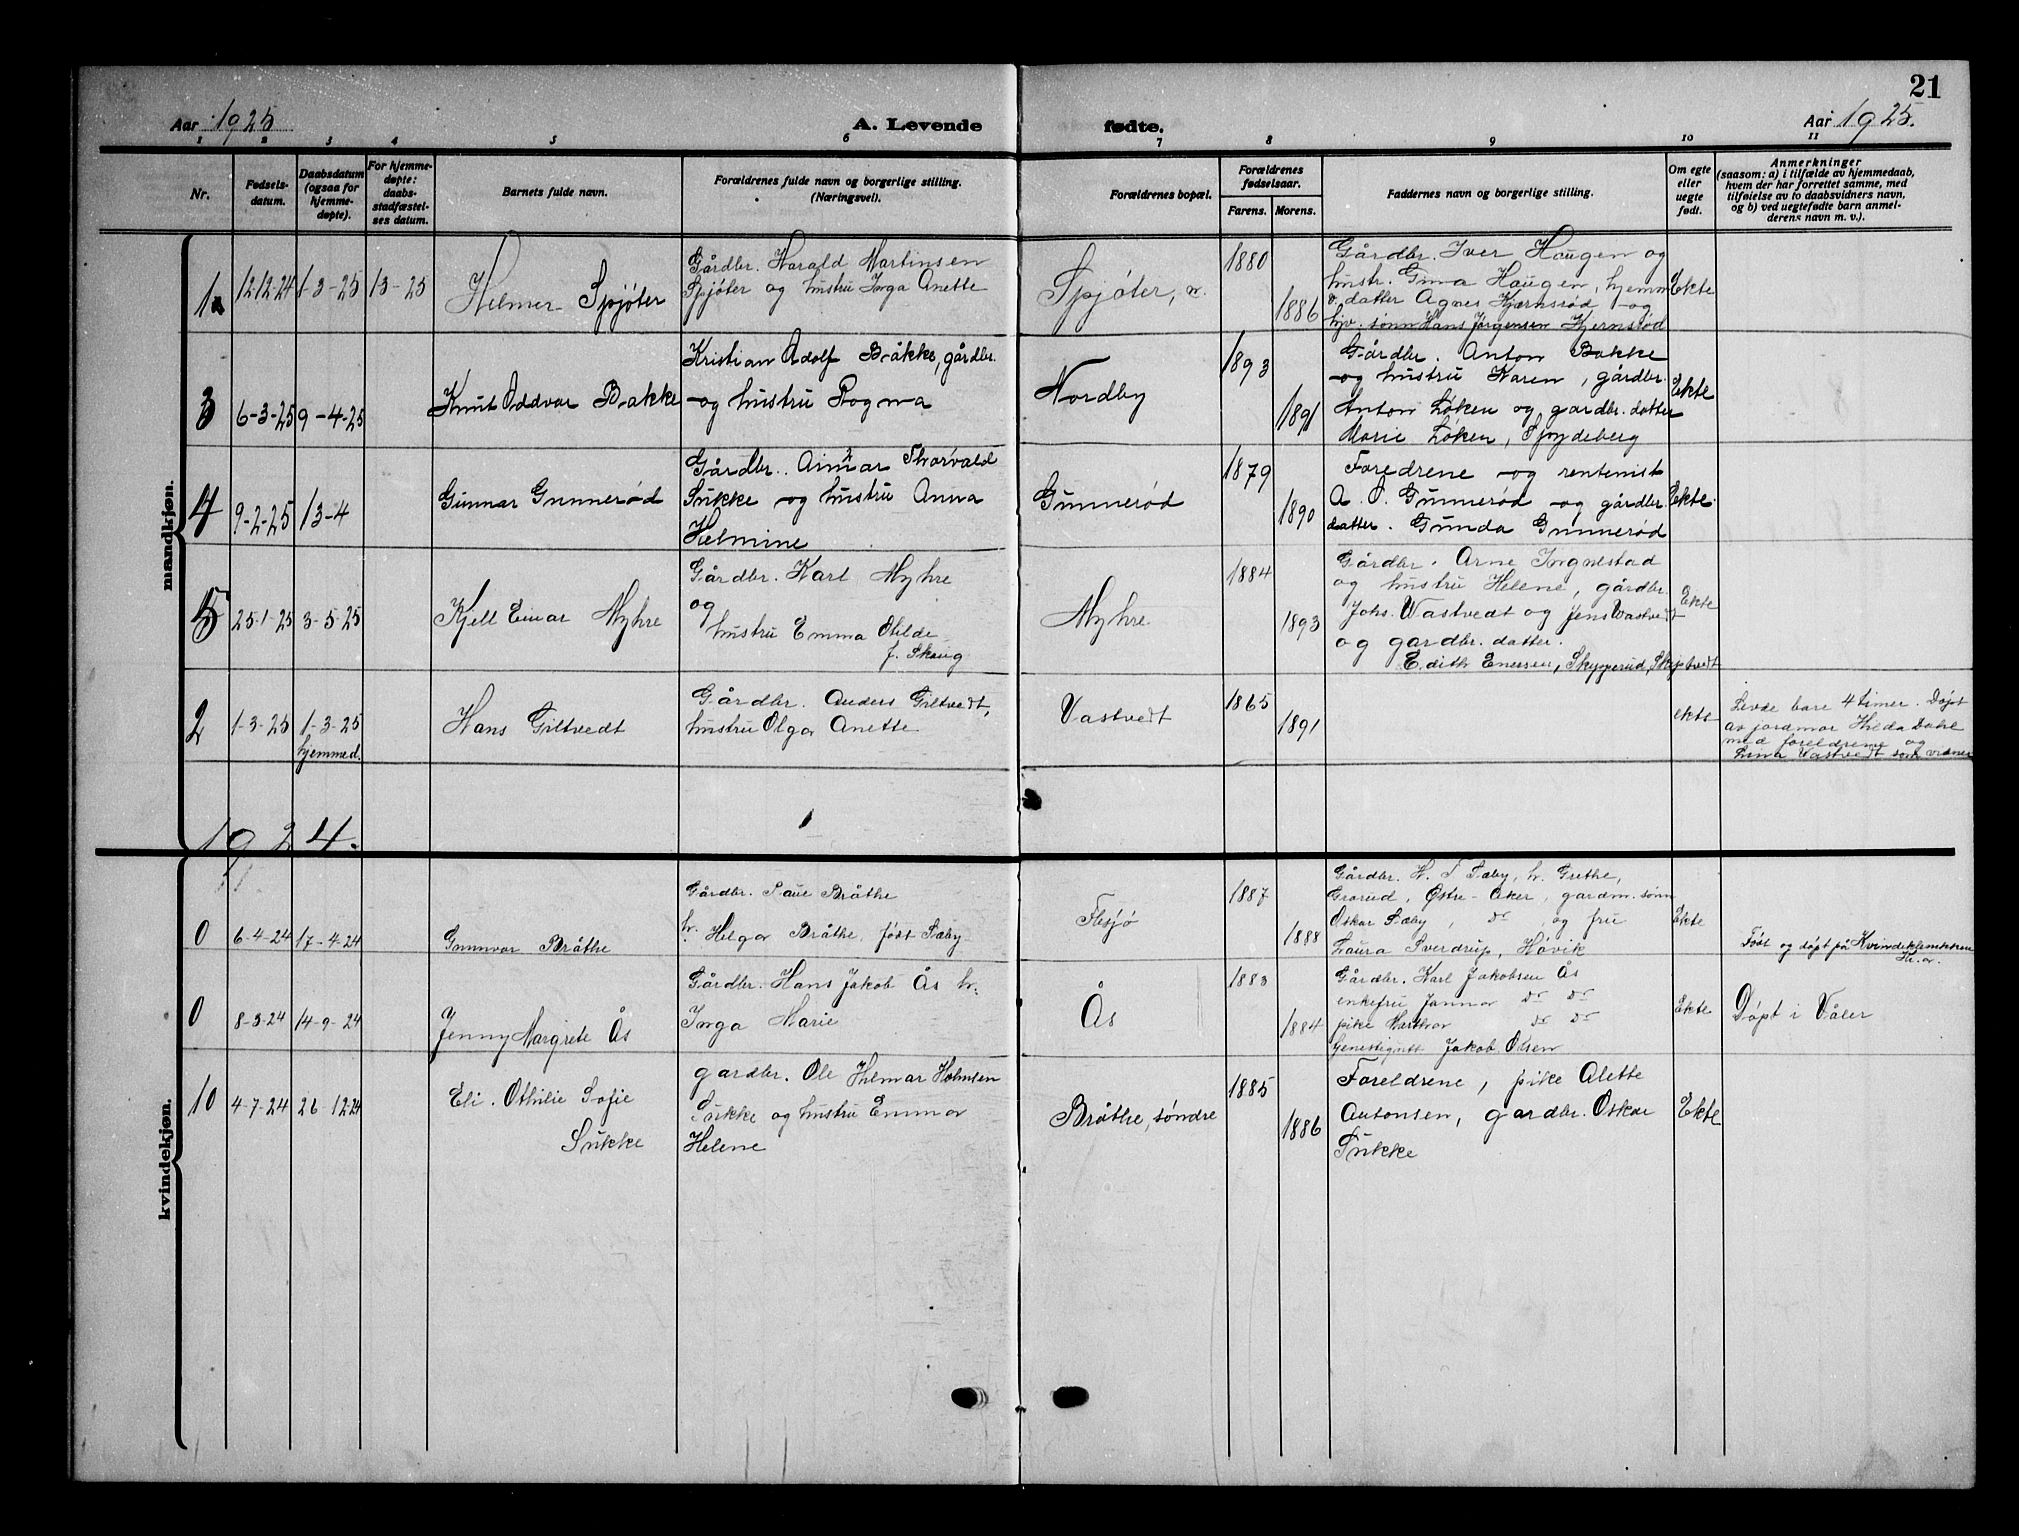 21
Aar 1925
A. Levende
fødte.
Aar 1925.
1 2 3 4 5 6 7 8 9 10 11
Nr.
Fødsels-
datum.
Daabsdatum
(ogsaa for
hjemme-
døpte).
For hjemme-
døpte:
daabs-
stadfæstel-
ses datum.
Barnets fulde navn.
Forældrenes fulde navn og borgerlige stilling.
(Næringsvei).
Forældrenes bopæl.
Forældrenes
fødselsaar.
Farens. Morens.
Faddernes navn og borgerlige stilling.
Om egte
eller
uegte
født.
Anmerkninger
(saasom: a) i tilfælde av hjemmedaab,
hvem der har forrettet samme, med
tilføielse av to daabsvidners navn,
og b) ved uegtefødte barn anmel-
derens navn m. v.).
mandkjøn.
1 12-12-24 1-3-25 13-25
Helmer Spjøter
Gårdbr. Harald Martinsen
Spjøter og hustru Inga Anette
Spjøter, n.
1880
1886
Gårdbr. Iver Haugen og
hustr. Gina Haugen, hjemm
v. datter Agnes Kjærnsrød og
hjv. sønn Hans Jørgensen Kjernsrød
Ekte
3 6-3-25 9-4-25
Knut Oddvar Bakke
Kristian Adolf Bakke, gårdbr.
og hustru Rogna
Nordby
1893
1891
Gårdbr. Anton Bakke
og hustru Karen, gårdbr.
Anton Løken og gardbr. datter
Marie Løken, Spydeberg
Ekte
4 9-2-25 13-4
Gunnar Gunnerød
Gårdbr. Thorvald
Sukke og hustru Anna
Helmine
Gunnerød
1879
1890
Foredrene og rentenist
A. O. Gunnerød og gårdbr.
datter. Gunda Gunnerød
Ekte.
5 25-1-25 3-5-25
Kjell Einar Myhre
Gårdbr. Karl Myhre
og
hustru Emma Otilde
f. Skaug
Myhre
1884
1893
Gårdbr. Arne
og hustru Helene, gårdbr.
Johs. Vastvedt og Jens Vastvedt
og gardbr. datter.
Edith Enersen, Skypperud, Skiptvedt
Ekte
2 1-3-25 1-3-25
hjemmed.
Hans Giltvedt
Gårdbr. Anders Giltvedt,
hustru Olga Anette
Vastvedt
1865
1891
ekte
Levde bare 4 timer. Døpt
av jordmor Hilda Dahl
med foreldrene og
Lina Vastvedt som vidner
1924.
kvindekjøn.
0 6-4-24 17-4-24
Gunnvor Bråthe
Gårdbr. Paul Bråthe
h. Helga Bråthe, født Sæby
Flesjø
1887
1888
Gårdbr. H. T Sæby, h. Grethe,
Grorud, Østre-Aker, gardm. sønn
Oskar Sæby, do, og fru
Laura Sverdrup, Høvik
Ekte
Født og døpt på Kvindeklinikken
Kr.a.
0 8-3-24 14-9-24
Jenny Margrete Ås
Gårdbr. Hans Jakob Ås h.
Inga Marie
Ås
1883
1884
Gårdbr. Karl Jakobsen Ås
enkefru do do
pike Marthor do do
Jakob Olsen
Ekte
Døpt i Våler
10 4-7-24 26-12-24
Eli. Othilie Sofie
Sukke
gardbr. Ole Hilmar Holmsen
Sukke og hustru Emma
Helene
Bråthe, søndre
1885
1886
Foreldrene, pike Alette
Antonsen, gardbr. Oskar
Sukke
Ekte